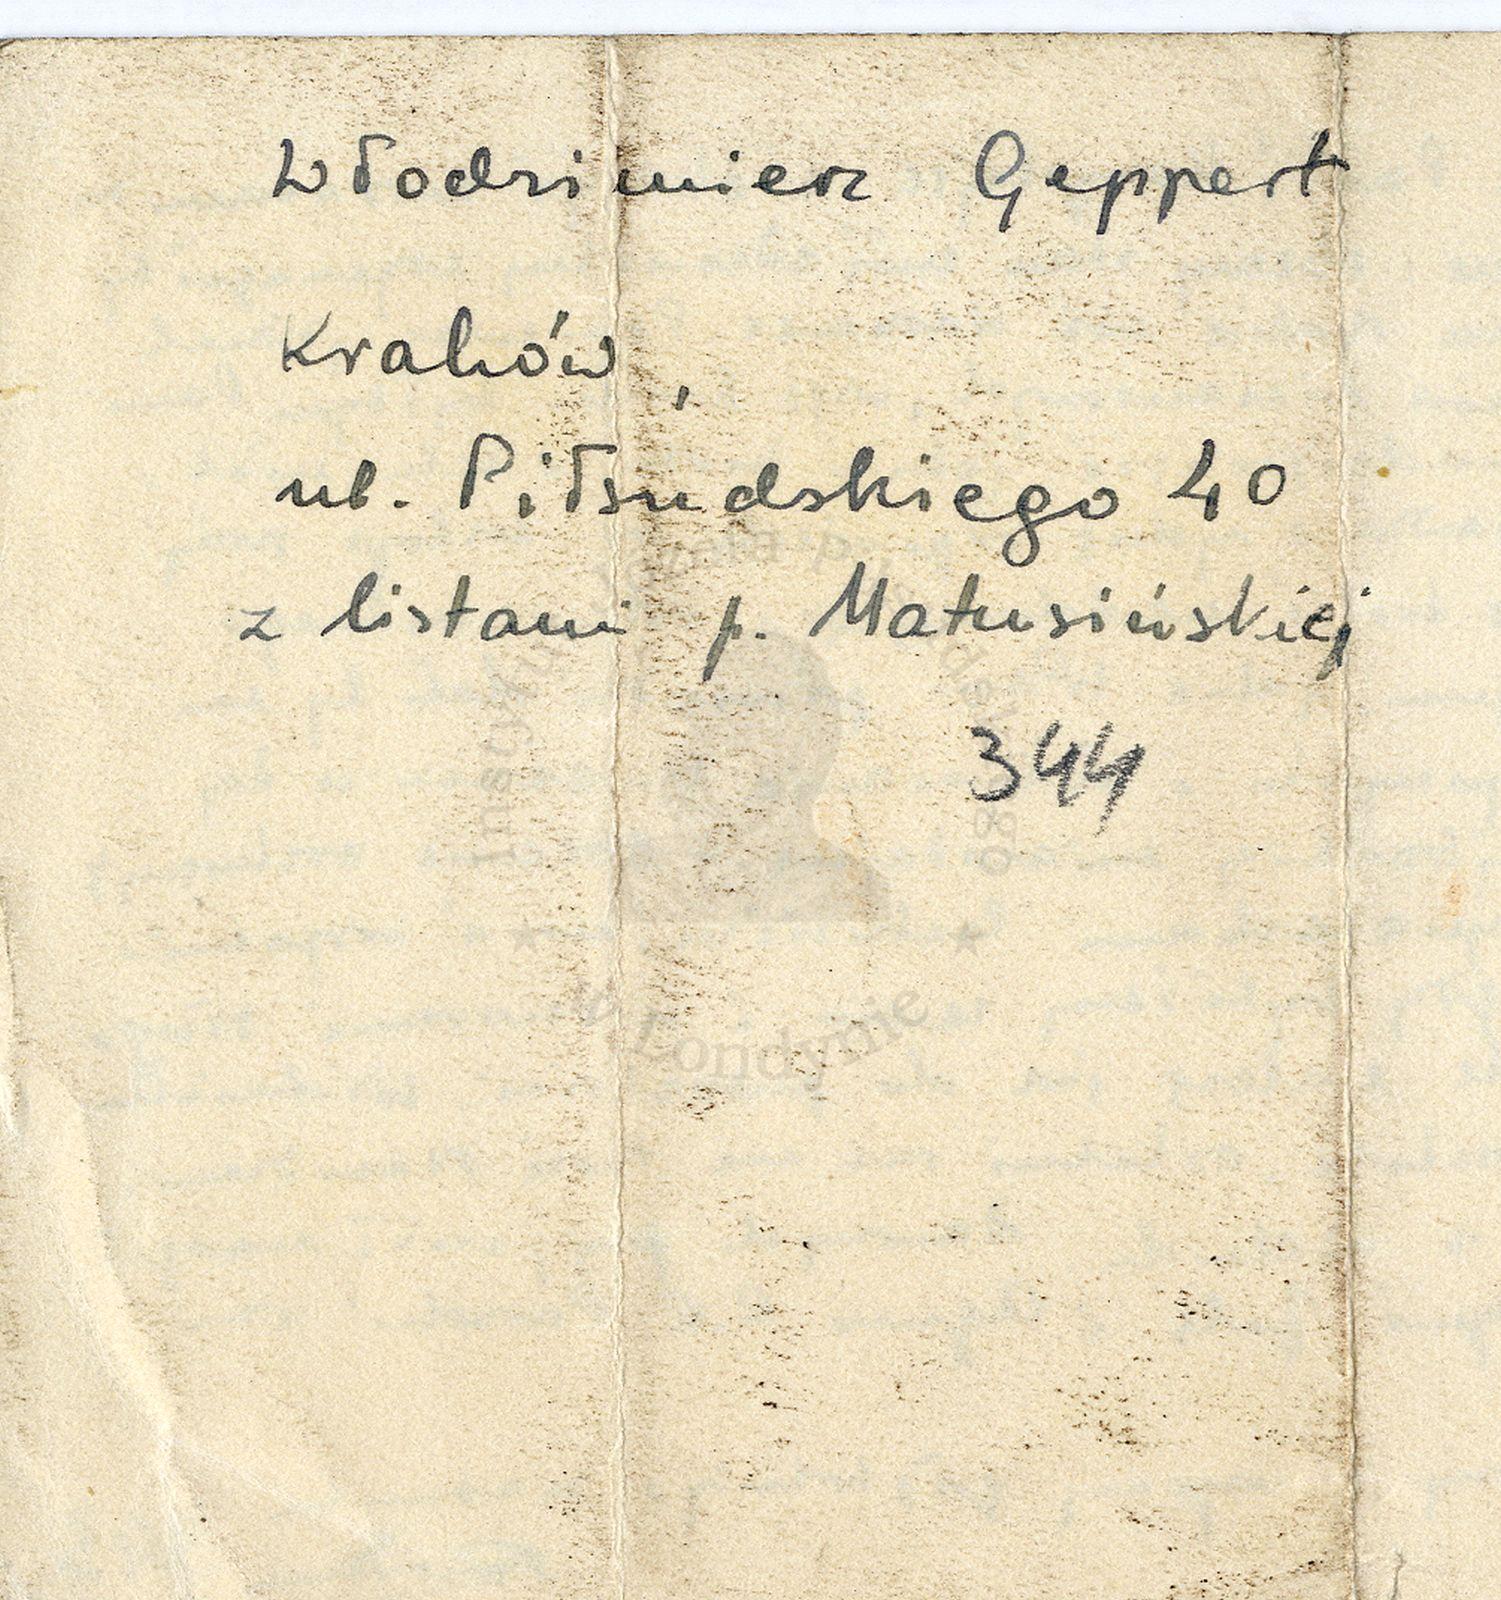 Włodzimierz Geppert
Kraków,
ul. Piłsudskiego 40
z listami p. Matusińskiej
344
Instytut Józefa Piłsudskiego
w Londynie